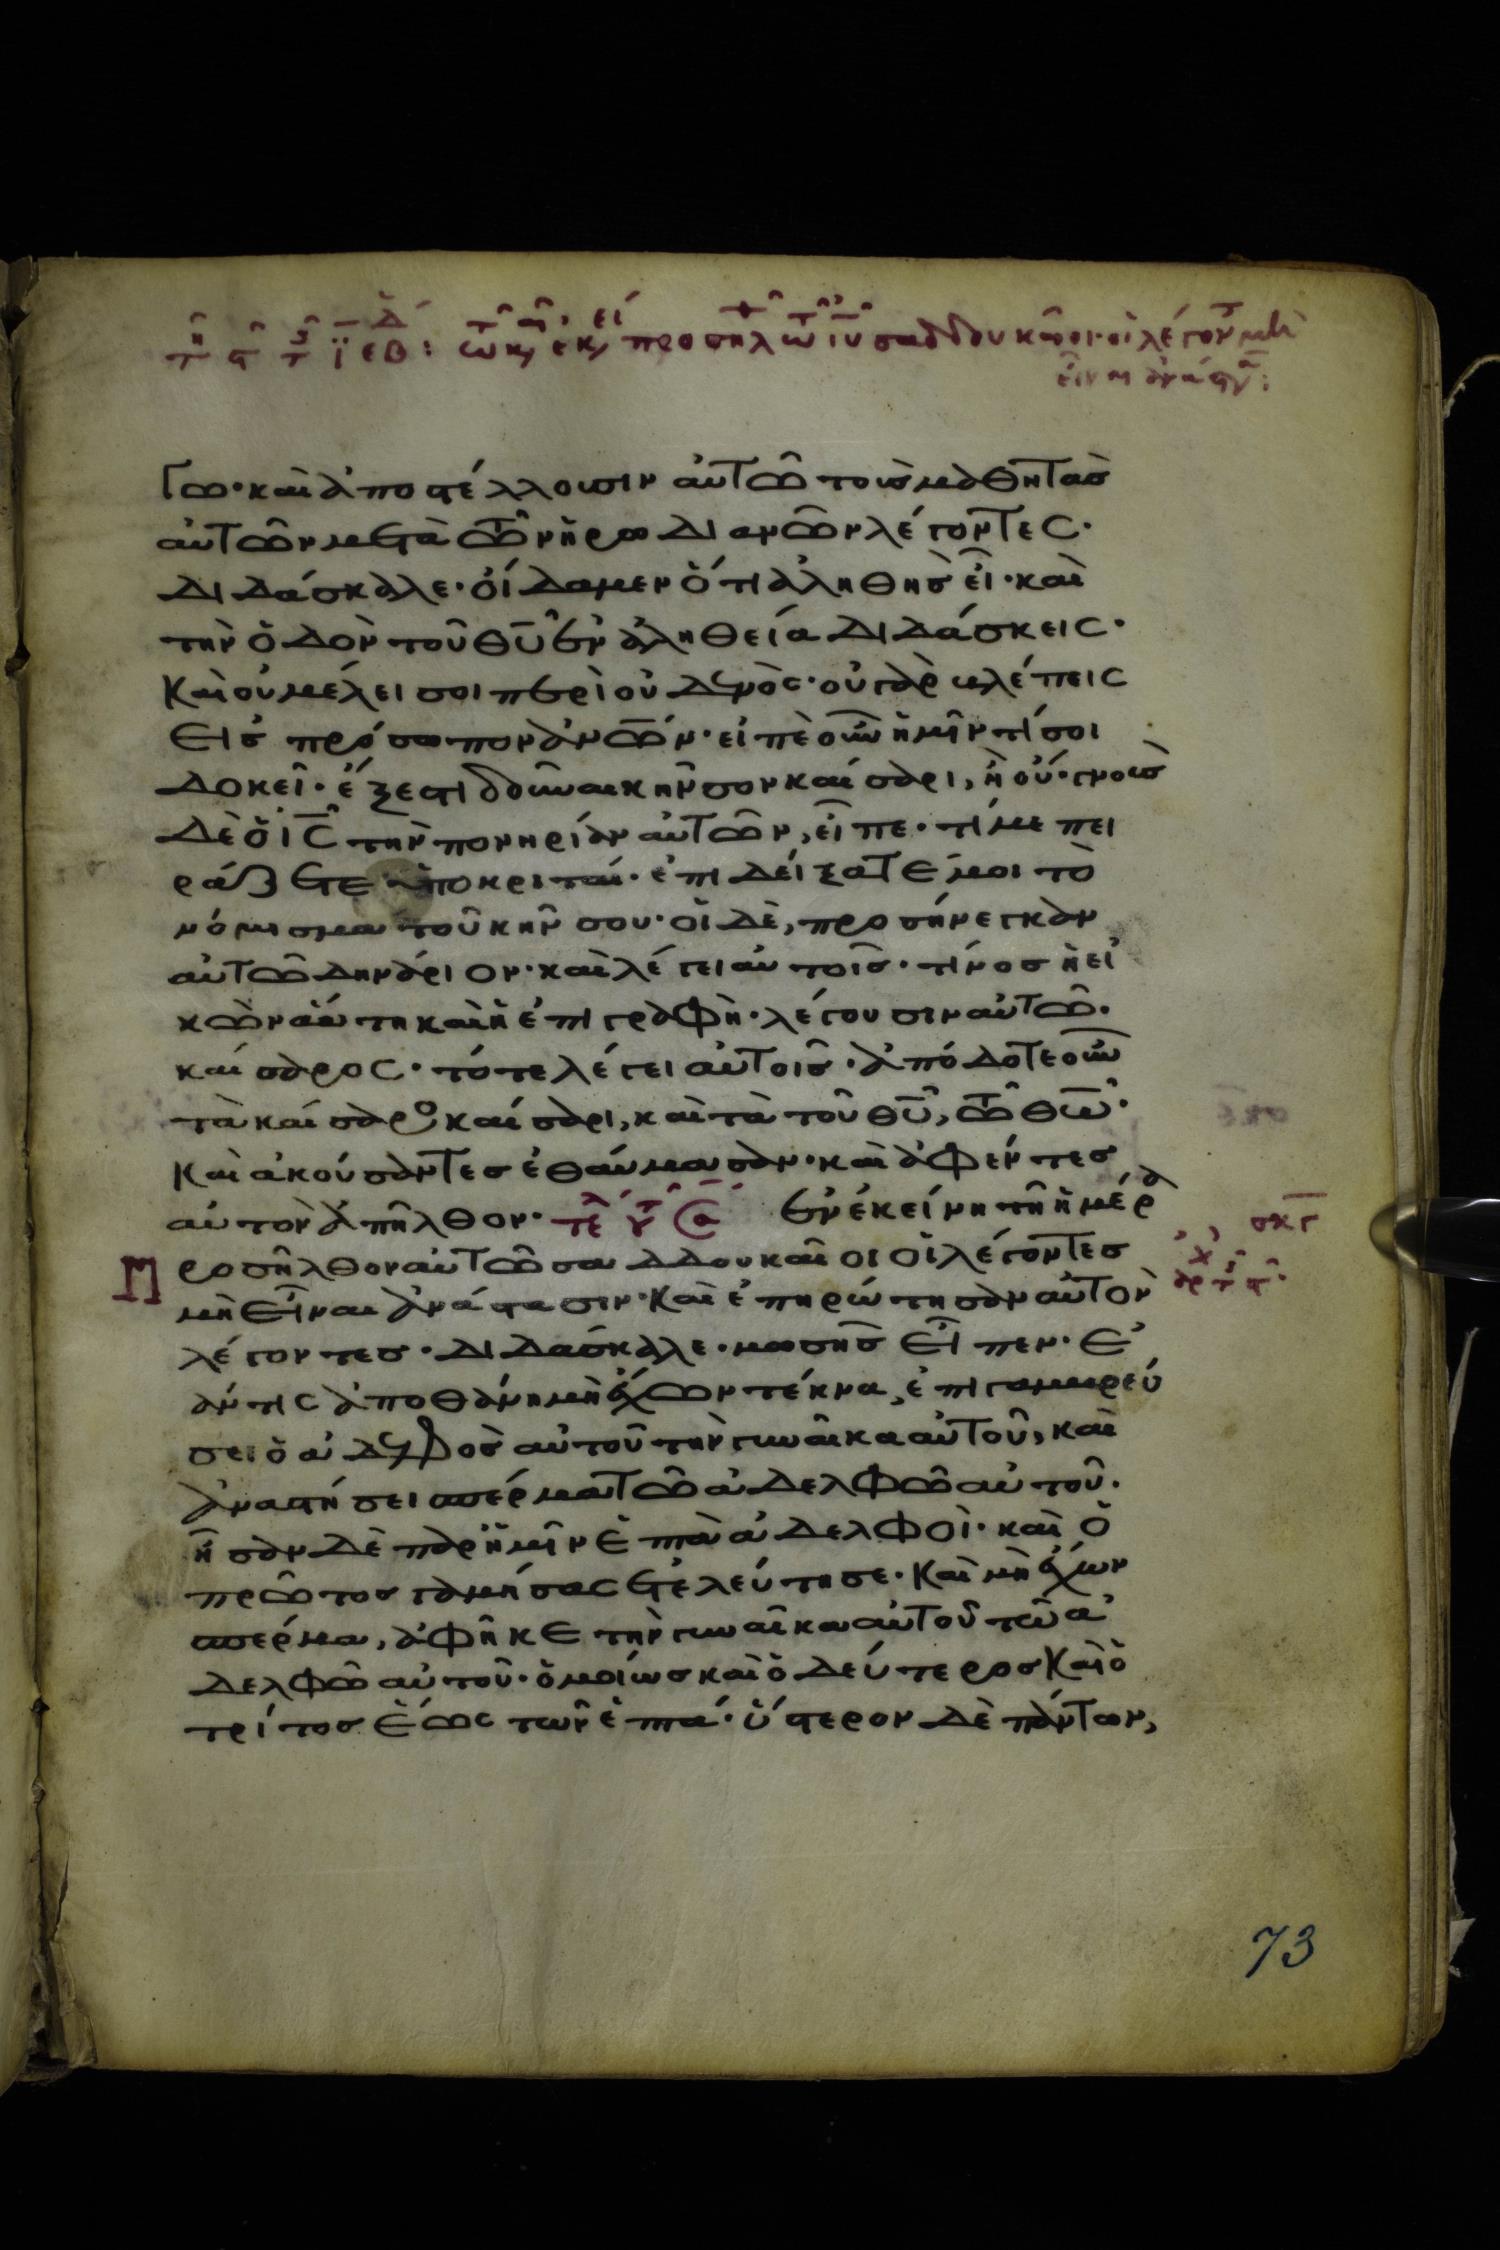 προσηλ τω ιυ σαδδουκαιοι· οι λέγον μὴ
εἶναι ἀνάστ:
γω· καὶ ἀποστέλλουσιν αὐτῶ τοὺς μαθητὰς
αὐτῶν μετὰ τῶν ἡρωδιανῶν λέγοντες·
διδάσκαλε· οἴδαμεν ὅτι ἀληθὴς εἶ· καὶ
τὴν ὁδὸν τοῦ θῦ ἐν ἀληθεία διδάσκεις·
καὶ οὐ μέλει σοι περὶ οὐδενὸς· οὐ γὰρ βλέπεις
εἰς πρόσωπον ἀνῶν· εἰπὲ οὖν ἡμῖν τί σοι
δοκεῖ· ἔξεστι δοῦναι κῆνσον καίσαρι, ἢ οὔ· γνοὺς
δὲ ὁ ις τὴν πονηρίαν αὐτῶν, εἶπε· τί με πει
ράζετε ὑποκριταί· ἐπιδείξατέ μοι τὸ
νόμισμα τοῦ κήνσου· οἱ δὲ, προσήνεγκαν
αὐτῶ δηνάριον· καὶ λέγει αὐτοῖς· τίνος ἡ εἰ
κὼν αὕτη καὶ ἡ ἐπιγραφὴ· λέγουσιν αὐτῶ·
καίσαρος· τότε λέγει αὐτοῖς· ἀπόδοτε οὖν
τὰ καίσαρος καίσαρι, καὶ τὰ τοῦ θῦ, τῶ θω·
καὶ ἀκούσαντες ἐθαύμασαν· καὶ ἀφέντες
αὐτὸν ἀπῆλθον· τε ἐν ἐκείνη τῆ ἡμέρα
σκγ
προσῆλθον αὐτῶ σαδδουκαῖοι οἱ λέγοντες
μὴ εἶναι ἀνάστασιν· καὶ ἐπηρώτησαν αὐτὸν
λέγοντες· διδάσκαλε· μωσῆς εἶπεν· ἐ
άν τις ἀποθάνη μὴ ἔχων τέκνα, ἐπιγαμβρεύ
σει ὁ ἀδελφὸς αὐτοῦ τὴν γυναῖκα αὐτοῦ, καὶ
ἀναστήσει σπέρμα τῶ ἀδελφῶ αὐτοῦ·
ἦσαν δὲ παρ' ἡμῖν ἑπτὰ ἀδελφοὶ· καὶ ὁ
πρῶτος γαμήσας ἐτελεύτησε· καὶ μὴ ἔχων
σπέρμα, ἀφῆκε τὴν γυναῖκα αὐτοῦ τῶ ἀ
δελφῶ αὐτοῦ· ὁμοίως καὶ ὁ δεύτερος καὶ ὁ
τρίτος ἕως τῶν ἑπτά· ὕστερον δὲ πάντων,
73